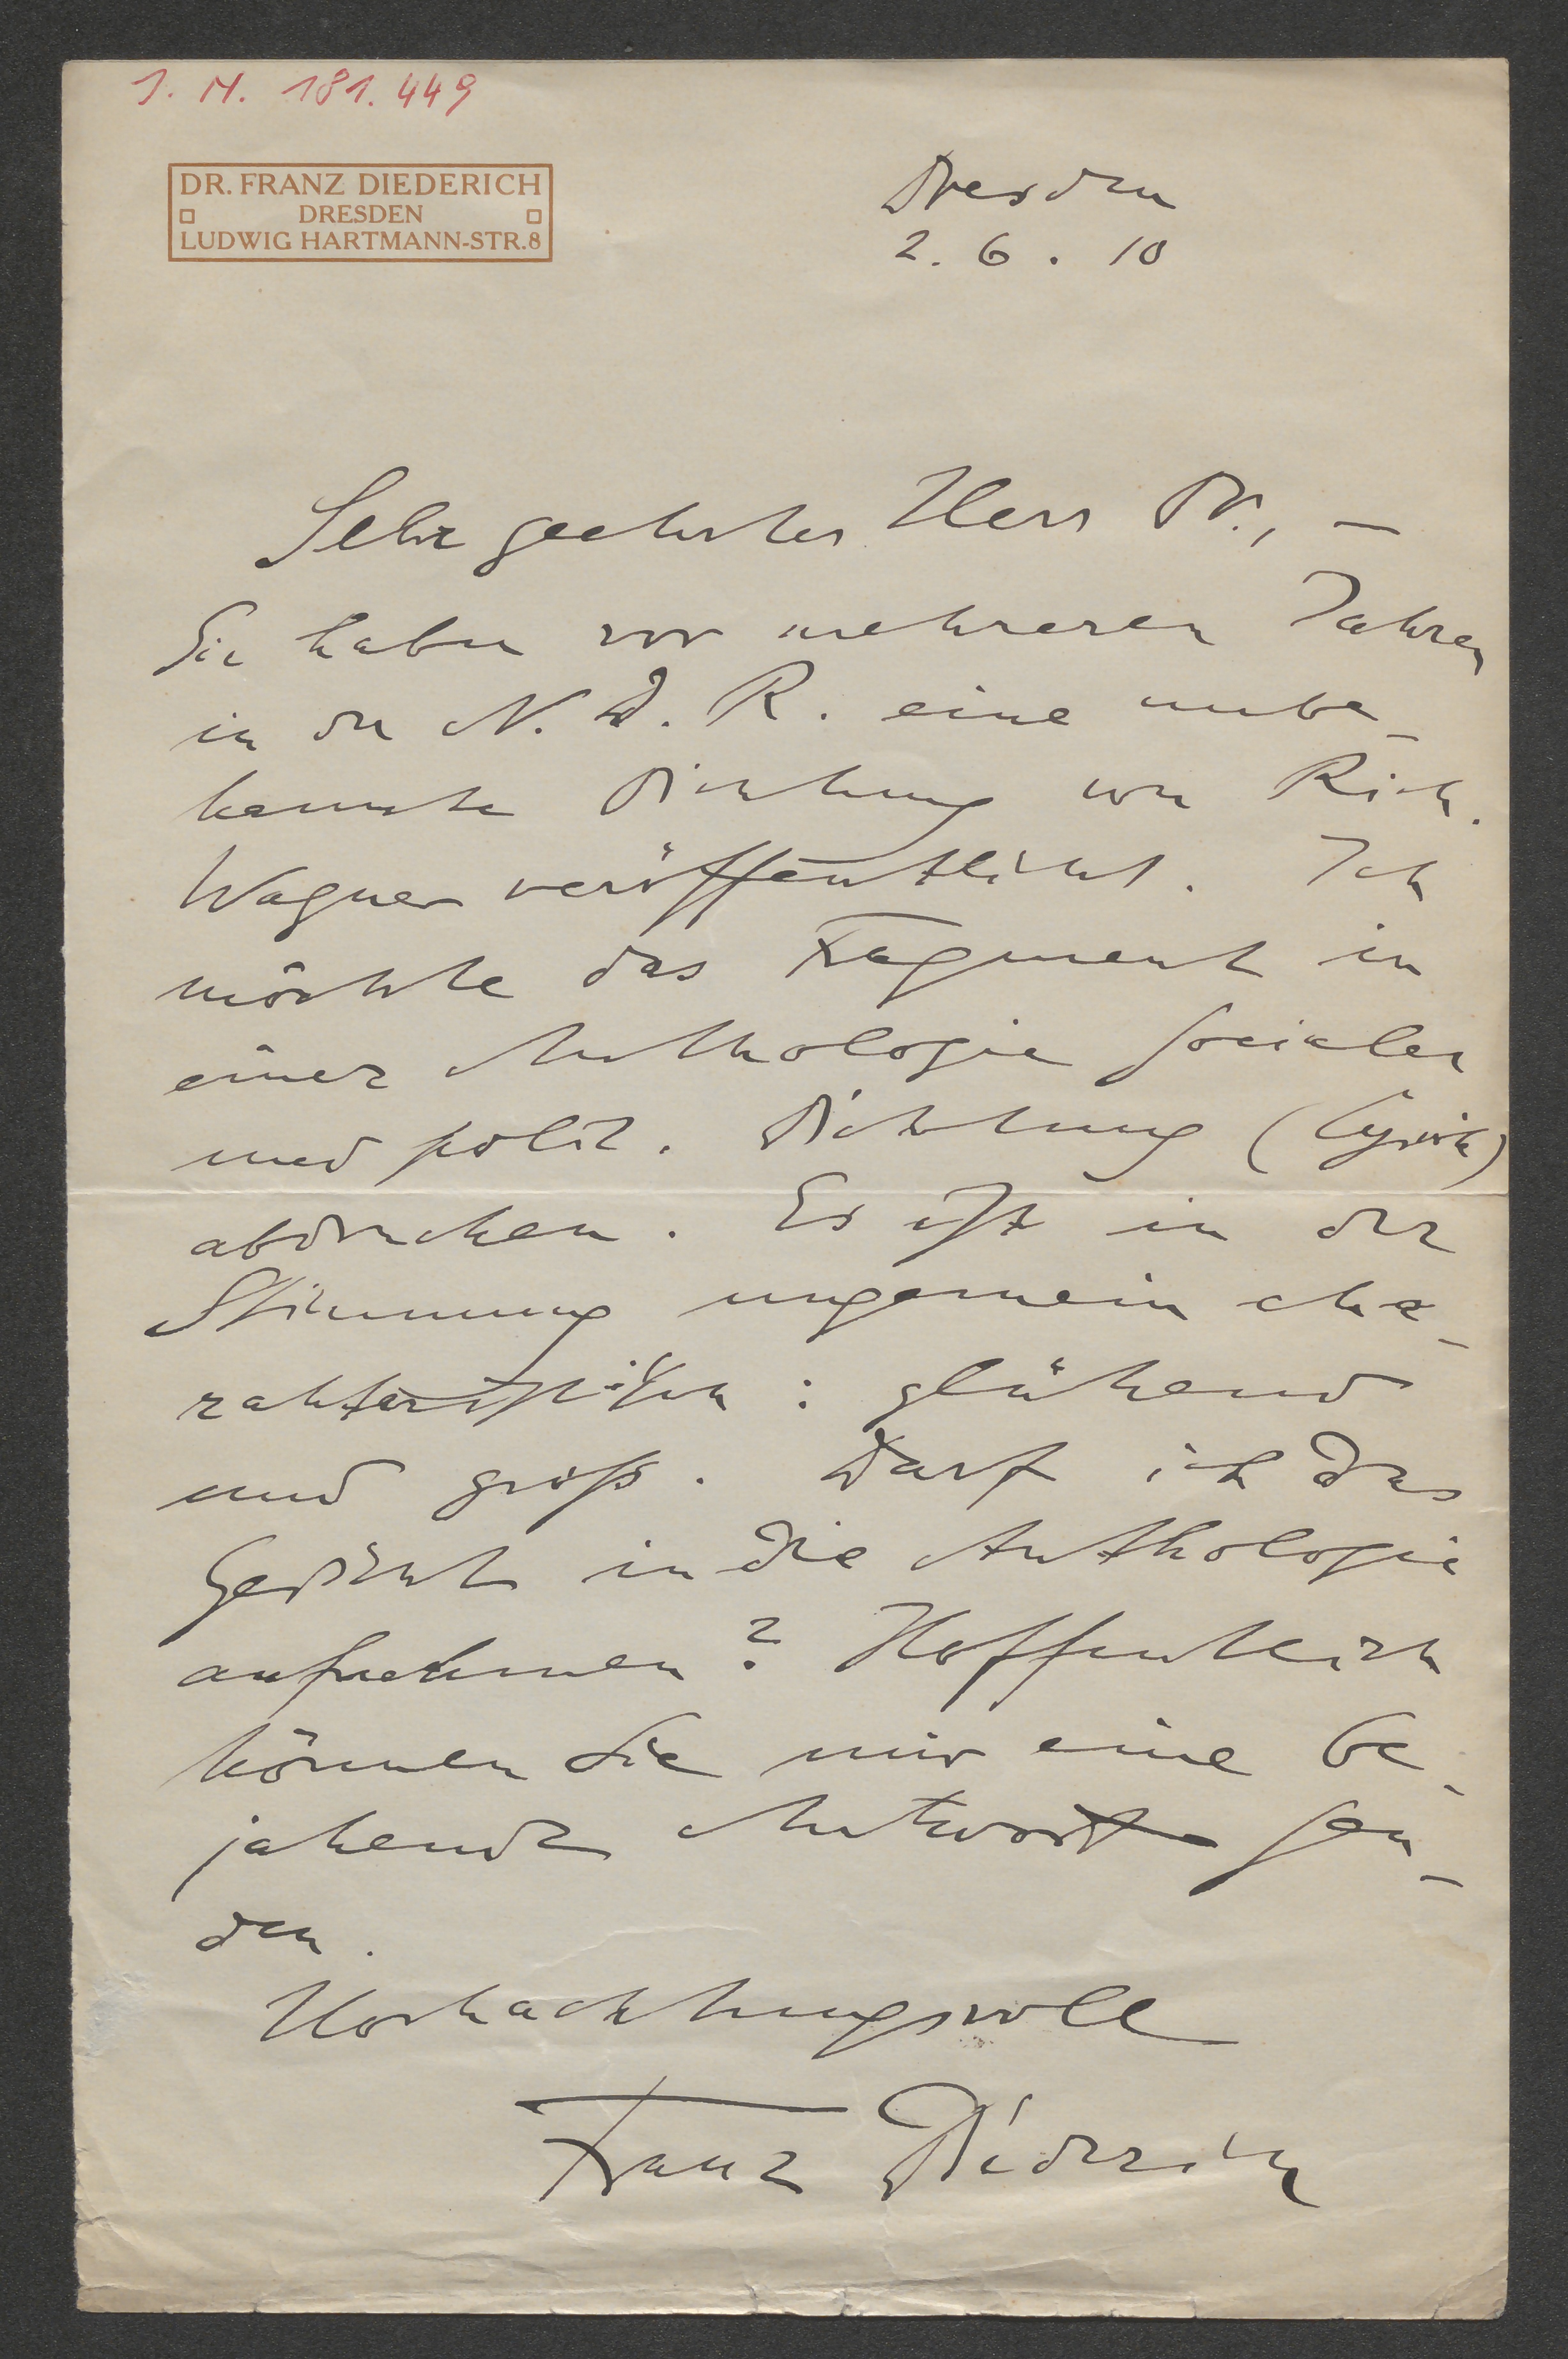 J. N. 181.449
DR. FRANZ DIEDERICH
DRESDEN
LUDWIG HARTMANN-STR. 8
Dresden
2. 6. 10
Sehr geehrter Herr Dr., –
Sie haben vor mehreren Jahren
in der N. D. R. eine unbe-
kannte Dichtung von Rich.
Wagner veröffentlicht. Ich
möchte das Fragment in
einer Anthologie socialer
und polit. Dichtung (Lyrik)
abdrucken. Es ist in der
Stimmung ungemein cha-
rakteristisch: glühend
und groß. Darf ich das
Gedicht in die Anthologie
aufnehmen? Hoffentlich
können Sie mir eine be-
jahende Antwort sen-
den.
Hochachtungsvoll
Franz Diederich